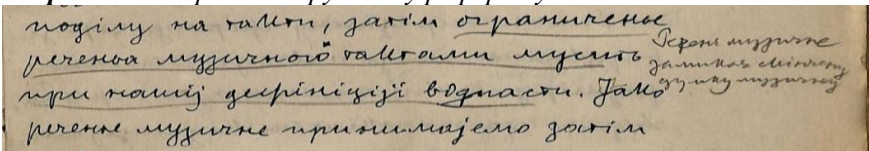 поділу на такти, затім ограниченьє
реченьа музичного тактами мусить
при нашіј дефініціјі водпасти. Јако
реченьє музичне принимајемо затім
Реченє музичне
замикає скінчену
думку музичну